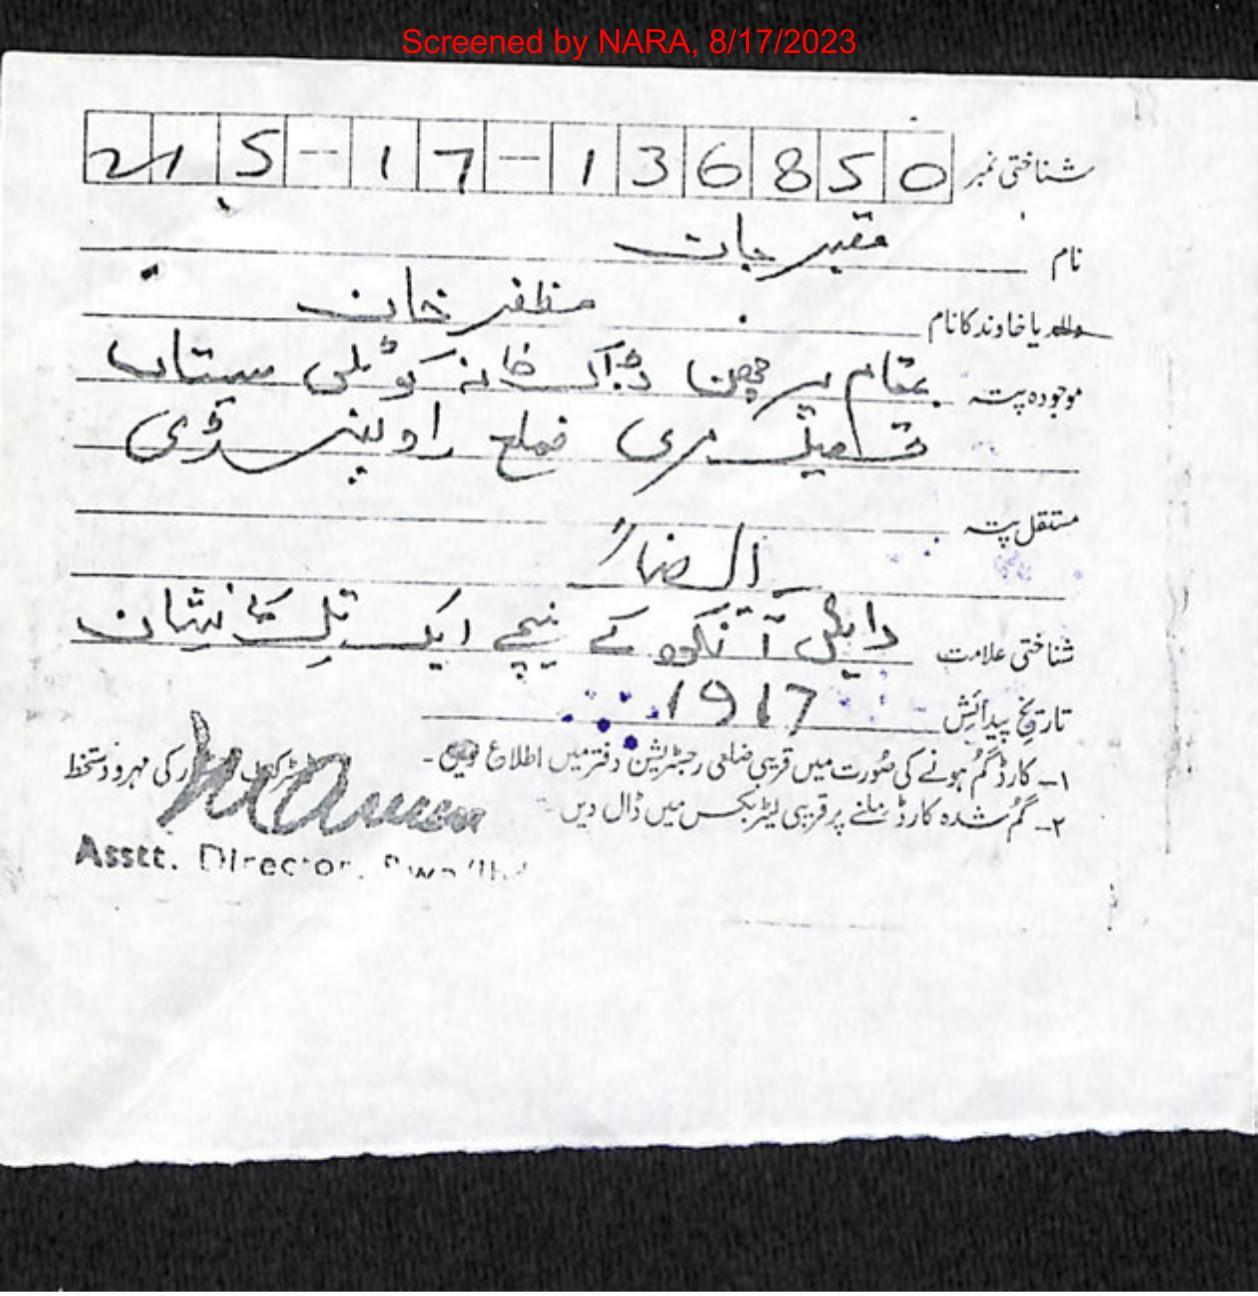 Screened by NARA, 8/17/2023
شناختی نمبر 215-17-136850
نام جان
والد یا خاوند کا نام مظفر خان
موجودہ پتہ بمقام ڈاکخانہ کوٹلی ستیاں
تحصیل مری ضلع راولپنڈی
مستقل پتہ
ایضاً
شناختی علامت دائیں آنکھ کے نیچے ایک تل کا نشان
تاریخ پیدائش 1917
۱- کارڈ گم ہونے کی صورت میں قریبی ضلعی رجسٹریشن دفتر میں اطلاع دیں -
کی مہر و دستخط
۲- گم شدہ کارڈ ملنے پر قریبی لیٹر بکس میں ڈال دیں
Asstt. Director,